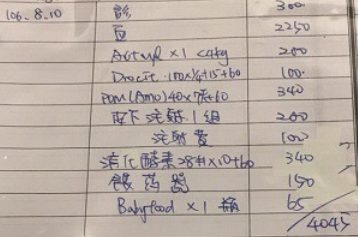 106.8.10 診 300
血 2250
Actrapid ×1 <4kg 200
Drocit 100×1/4+15+60 100
POM(Amo)40×7+60 340
皮下注射1組 200
注射費 100
消化酵素28#×10+60 340
餵药器 150
Babyfood ×1 瓶 65
4045